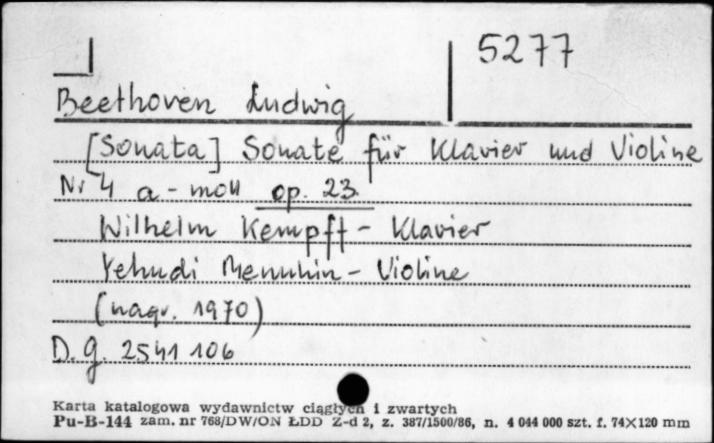 5277
Beethoven Ludwig
[Sonata] Sonate für Klavier und Violine
Nr 4 a-moll op. 23.
Wilhelm Kempff - Klavier
Yehudi Menuhin - Violine
(nagr. 1970)
D.g. 2541 106
Karta katalogowa wydawnictw ciągłych i zwartych
Pu-B-144 zam. nr 768/DW/ON ŁDD Z-d 2, z. 387/1500/86, n. 4 044 000 szt. f. 74×120 mm